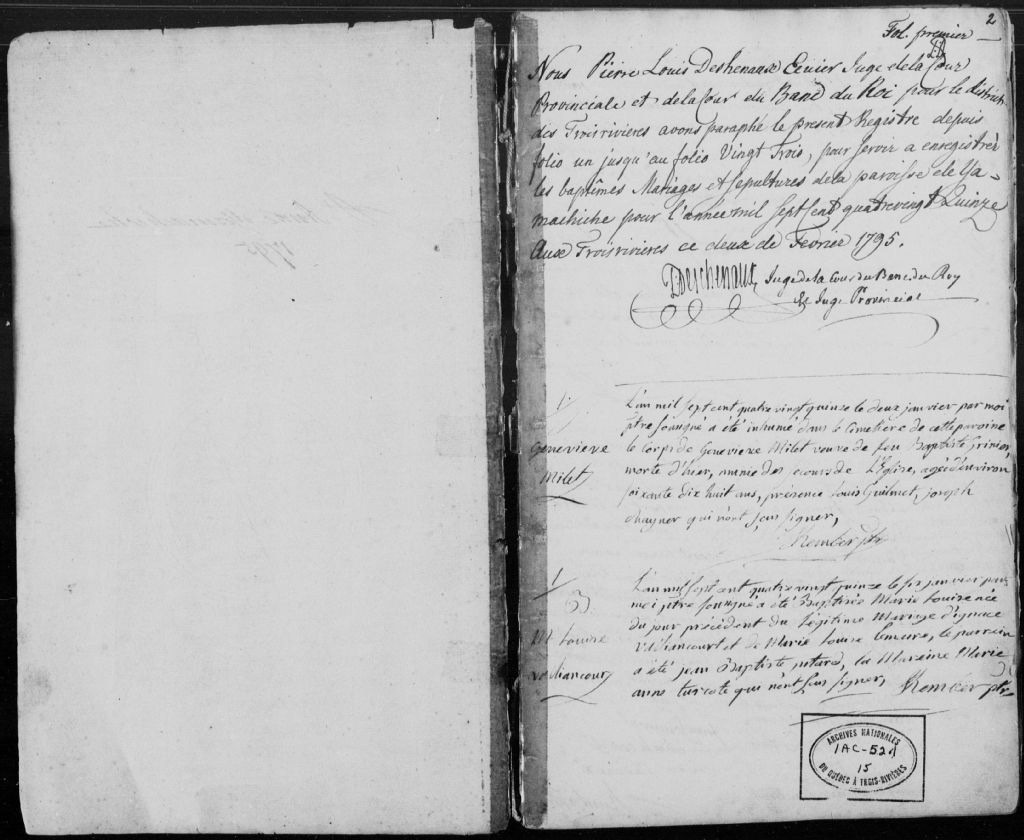 2
Fol. premier
Nous Pierre Louis Deshenaux Ecuier Juge de la Cour
Provinciale et de la Cour du Banc du Roi pour le district
des Troisrivieres avons paraphé le present Registre depuis
folio un jusqu'au folio Vingt Trois, pour servir a enregistrer
les baptêmes Mariages et sepultures de la paroisse de Ya-
machiche pour l'année mil Sept Cent quatrevingt Quinze
Aux Troisrivieres ce deux de Fevrier 1795.
Deschenaux Juge de la Cour du Banc du Roy
& Juge Provincial
1795
1
Genevieve
Milet
L'an mil sept cent quatre vingt quinze le deux janvier par moi
ptre sousigné a été inhumé dans le Cimetiere de cette paroisse
le corps de Genevieve Milet veuve de feu Baptiste Grinier,
morte d'hier, munie des secours de L'Eglise, agée d'environ
soixante dix huit ans, présence Louis Guilmet, joseph
qui n'ont sçus signer,
ptr
1
B
M. Louise
L'an mil sept cent quatre vingt quinze le six janvier par
moi ptre sousigné a été Baptisée Marie Louise née
du jour précédent du Légitime Mariage d'ignace
et de Marie Louise Lemire, le parrein
a été jean Baptiste la Mareine Marie
anne turcote qui n'ont sçus signer, ptr
ARCHIVES NATIONALES
1AC-521
15
DU QUÉBEC À TROIS-RIVIÈRES